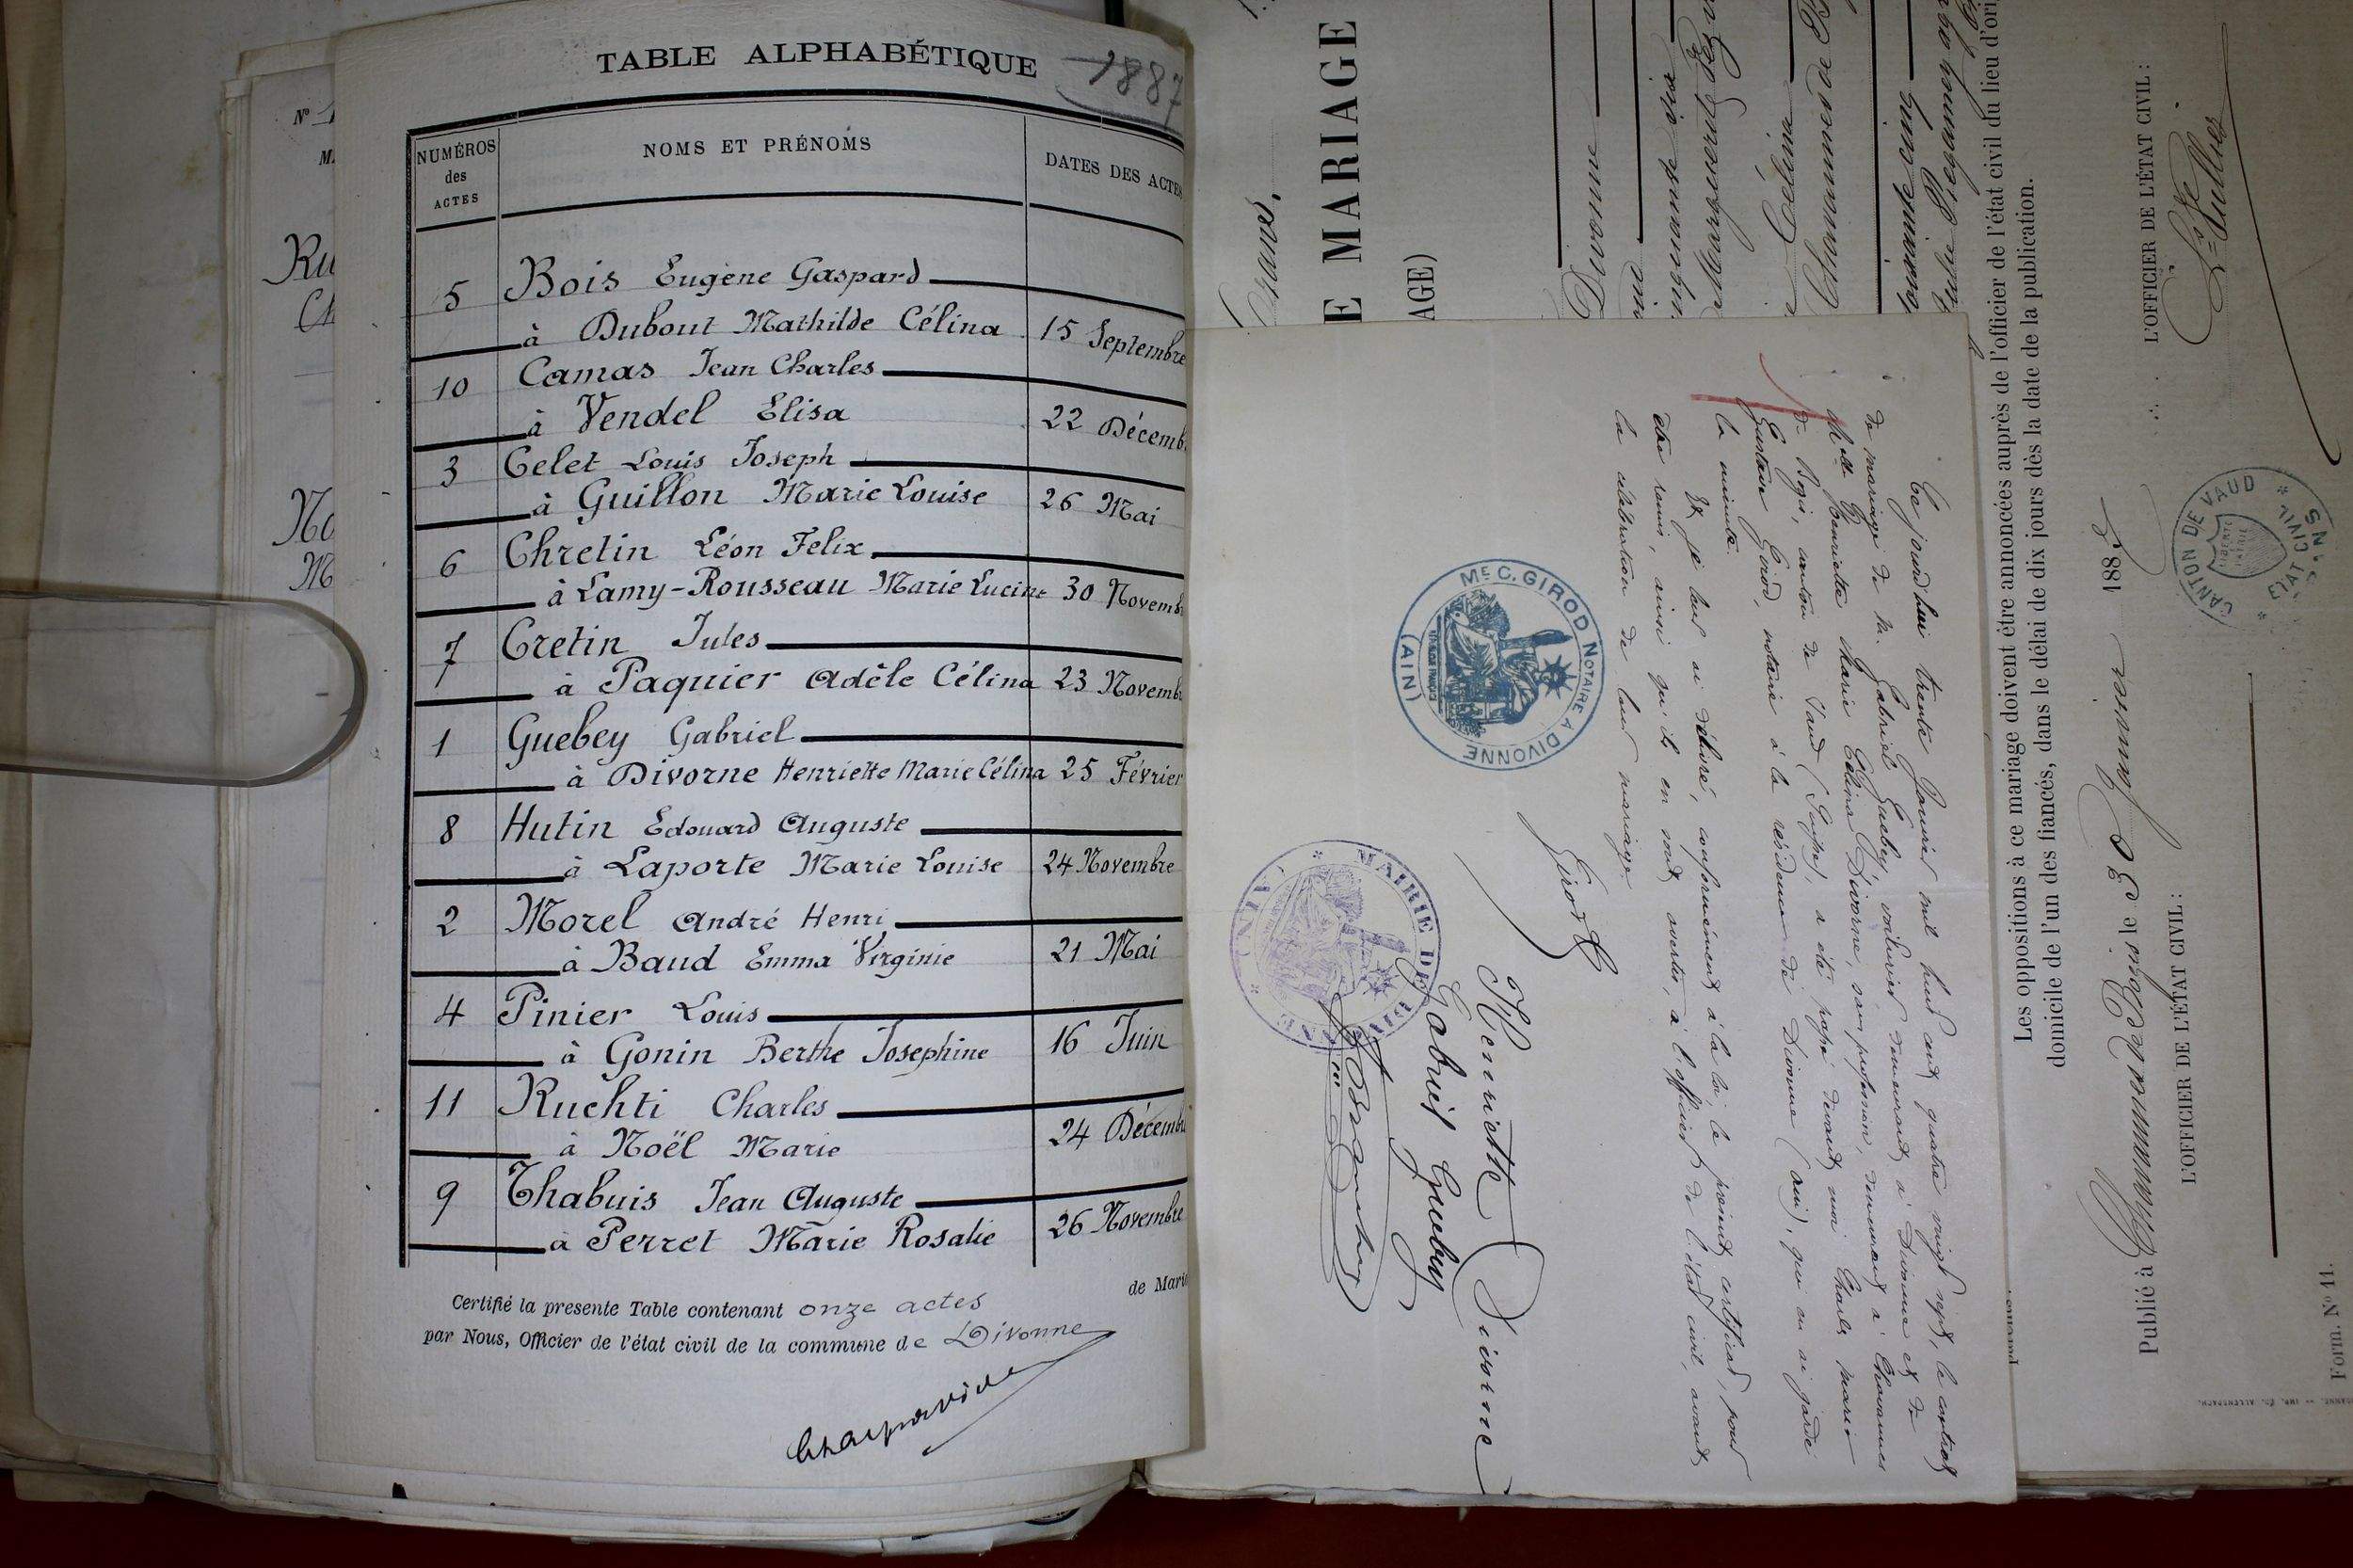 TABLE ALPHABÉTIQUE
1887
NUMÉROS
des
ACTES
NOMS ET PRÉNOMS
DATES DES ACTES
5 Bois Eugène Gaspard
à Dubout Mathilde Célina 15 Septembre
10 Camas Jean Charles
à Vendel Elisa 22 Décemb
3 Celet Louis Joseph
à Guillon Marie Louise 26 Mai
6 Chretin Léon Felix
à Lamy-Rousseau Marie Lucine 30 Novemb
7 Cretin Jules
à Paquier Adèle Célina 23 Novemb
1 Guebey Gabriel
à Divorne Henriette Marie Célina 25 Février
8 Hutin Edouard Auguste
à Laporte Marie Louise 24 Novembre
2 Morel André Henri
à Baud Emma Virginie 21 Mai
4 Pinier Louis
à Gonin Berthe Josephine 16 Juin
11 Ruchti Charles
à Noël Marie 24 Décemb
9 Thabuis Jean Auguste
à Perret Marie Rosalie 26 Novembre
de Mari
Certifié la presente Table contenant onze actes
par Nous, Officier de l'état civil de la commune de Divonne
N° 1
M.
Ru
Ch
No
M
Ce jourd'hui trente Janvier mil huit cent quatre vingt sept, le contrat
de mariage de M. Gabriel Guebey, voiturier demeurant à Divonne et de
Mlle Henriette Marie Célina Divorne, sans profession, demeurant à Chavannes
de Bogis, canton de Vaud (Suisse), a été passé devant moi Charles Marie
Gustave Girod, notaire à la résidence de Divonne (Ain), qui en ai gardé
la minute.
Et je leur ai délivré, conformément à la loi, le présent certificat, pour
être remis, ainsi qu'ils en sont avertis, à l'officier de l'état civil, avant
la célébration de leur mariage.
Girod
Henriette Divorne
Gabriel Guebey
Me C. GIROD NOTAIRE A DIVONNE
(AIN)
MAIRIE DE DIVONNE
(AIN)
E MARIAGE
AGE)
Les oppositions à ce mariage doivent être annoncées auprès de l'officier de l'état civil du lieu d'ori
domicile de l'un des fiancés, dans le délai de dix jours dès la date de la publication.
Publié à Chavannes de Bogis le 30 Janvier 188
L'OFFICIER DE L'ÉTAT CIVIL :
L'OFFICIER DE L'ÉTAT CIVIL :
CANTON DE VAUD
ETAT CIVIL
LIBERTÉ
PATRIE
Form. N° 11.